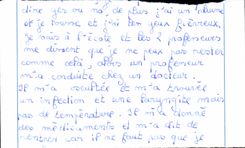 dire yes ou no, de plus j'ai un rhume
et je tousse et j'ai les yeux fiévreux.
Je suis à l'école et les 2 professeurs
me disent que je ne peux pas rester
comme cela, alors un professeur
m'a conduite chez un docteur.
Il m'a ocultée et m'a trouvée
un infection et une pharyngite mais
pas de température. Il m'a donné
des médicaments et m'a dit de
rentrer car il ne faut pas que je